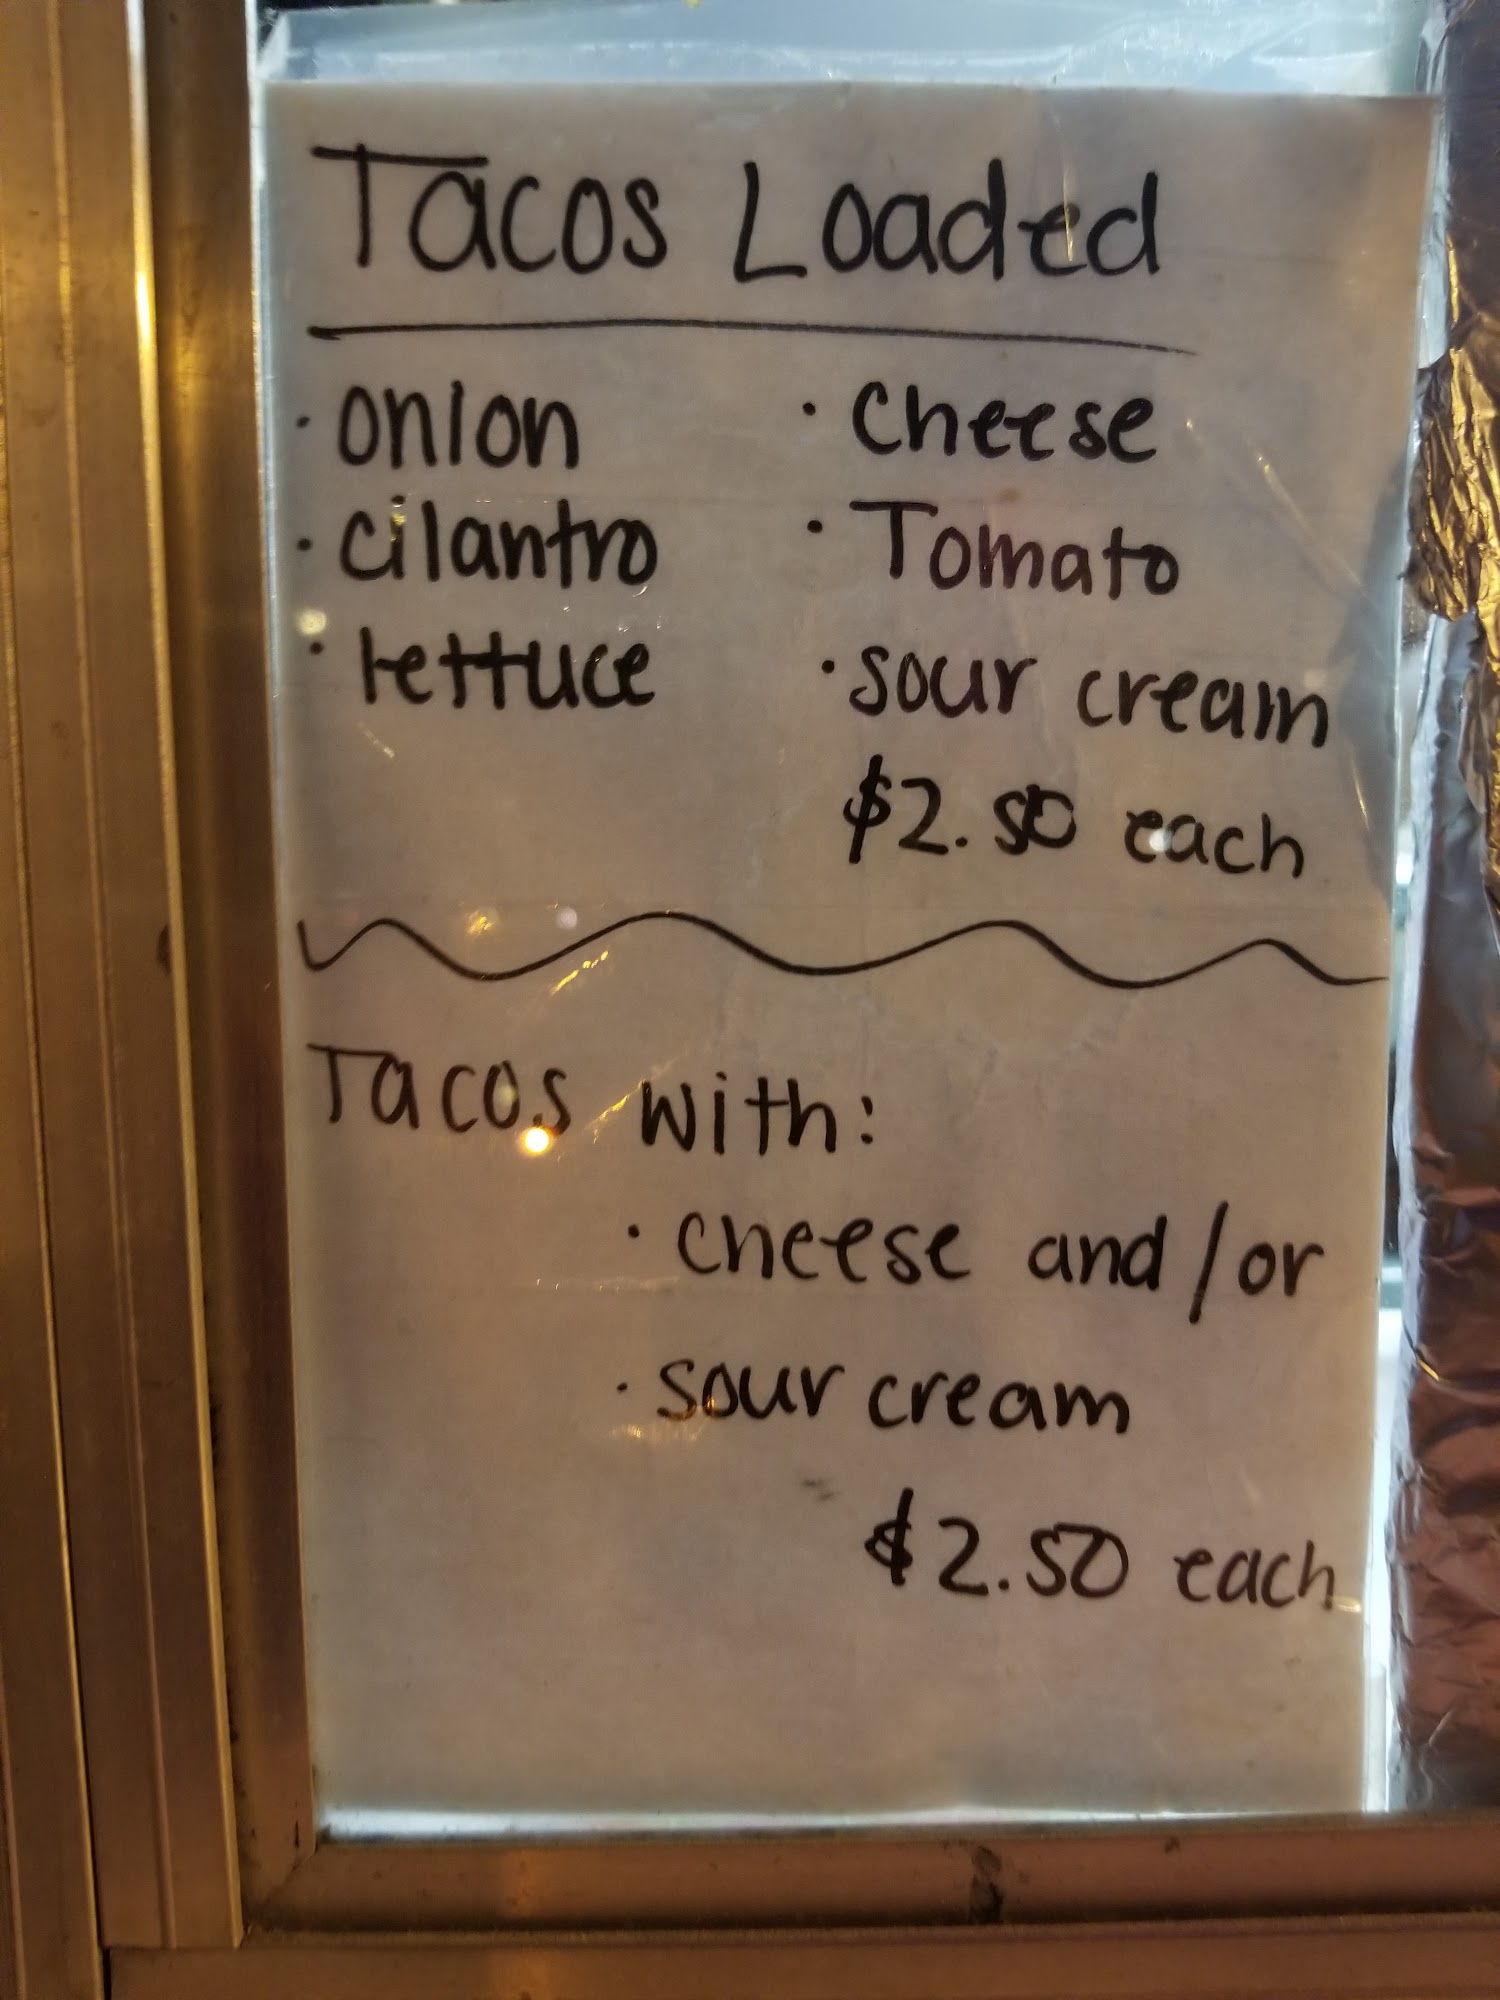 Tacos Loaded
· onion · Cheese
· cilantro · Tomato
· lettuce · sour cream
$2.50 each
Tacos with:
· cheese and/or
· sour cream
$2.50 each